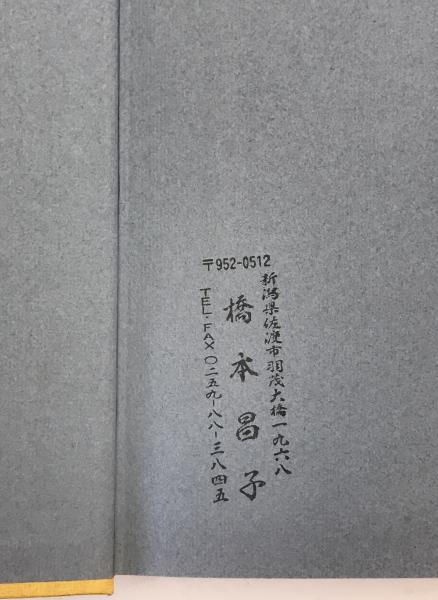 〒952-0512
新潟県佐渡市羽茂大橋一九六八
橋本昌子
TEL・FAX〇二五九-八八-三八四五